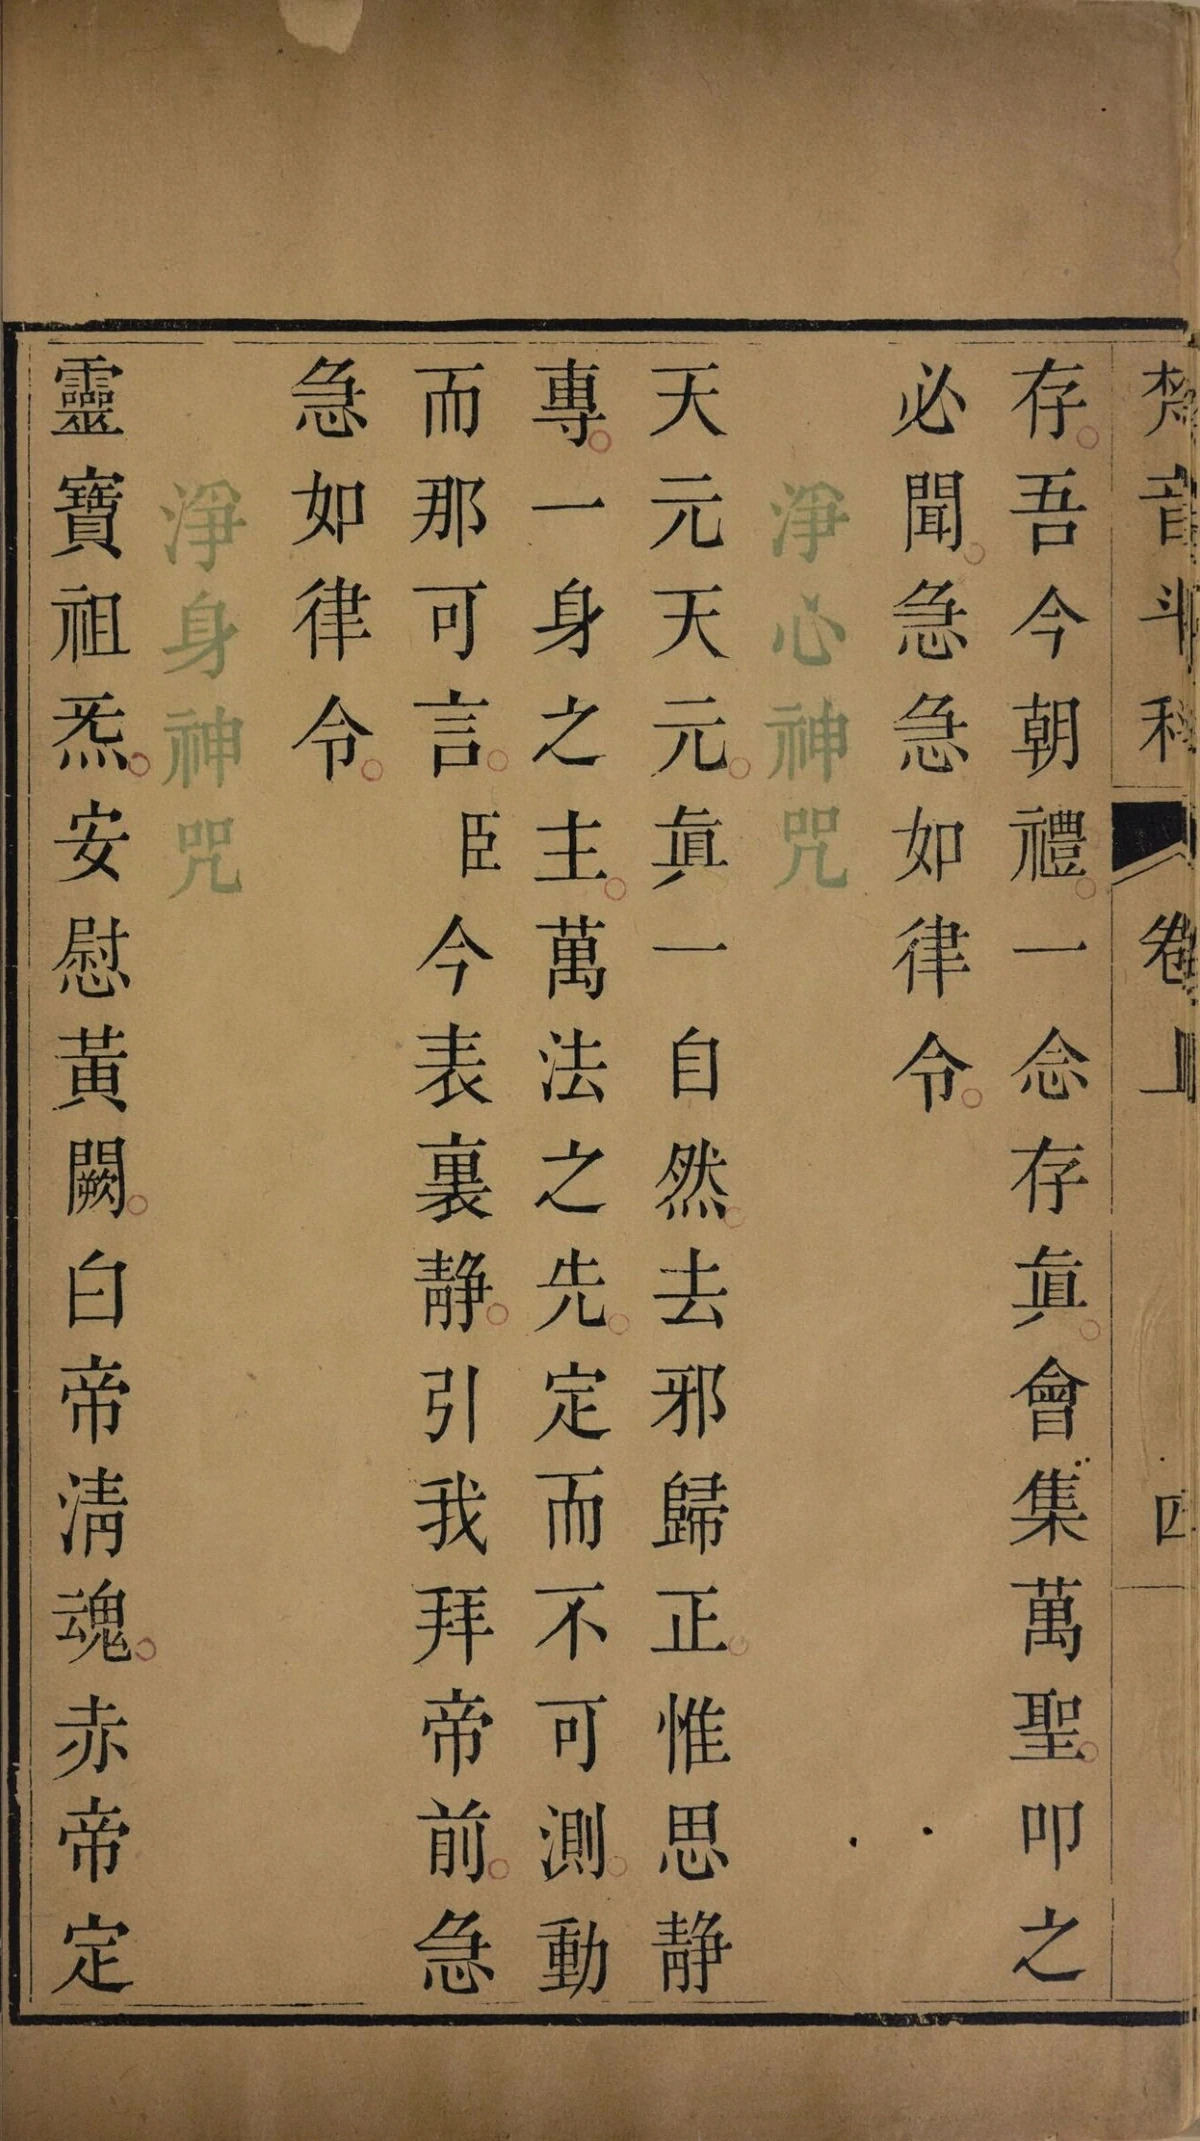 梵音斗科 卷上 四
存。吾今朝禮。一念存眞。會集萬聖。叩之
必聞。急急如律令。
淨心神咒
天元天元。眞一自然。去邪歸正。惟思靜
專。一身之主。萬法之先。定而不可測。動
而那可言。臣今表裏靜。引我拜帝前。急
急如律令。
淨身神咒
靈寶祖炁。安慰黃闕。白帝淸魂。赤帝定